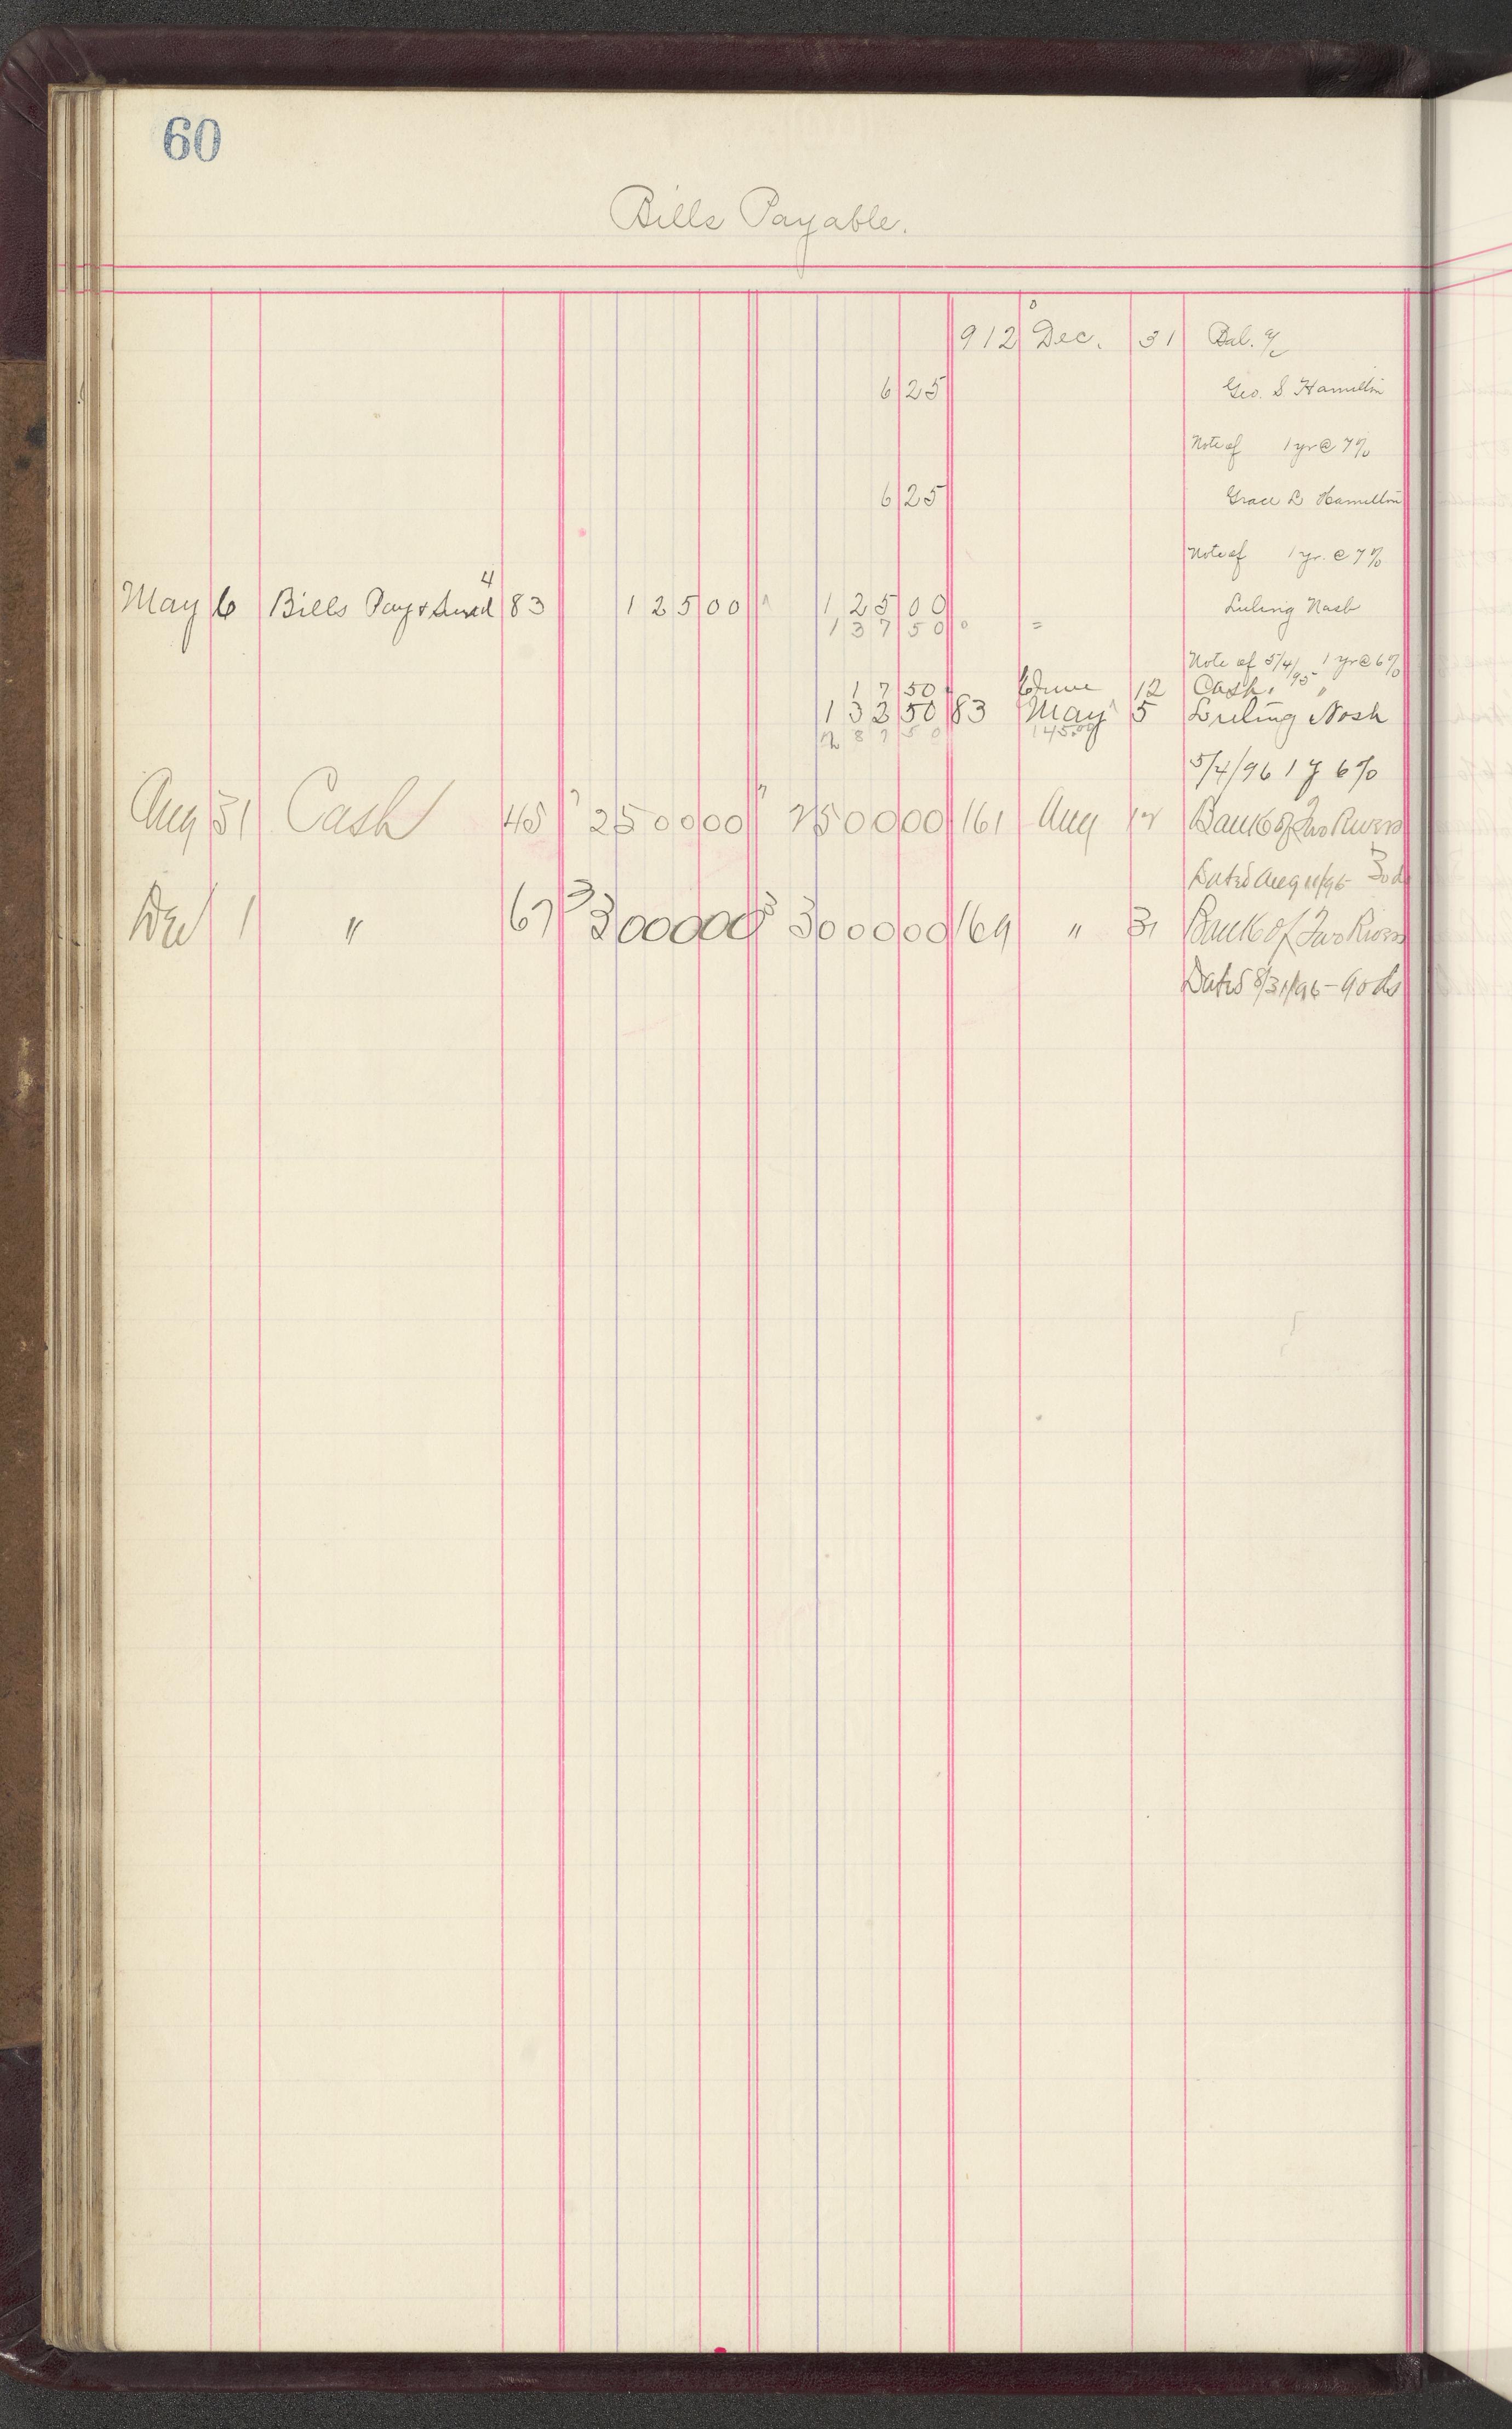 60
Bills Payable.
912 Dec. 31 Bal. a/c
6 25 Geo. S Hamilton
Note of 1 yr @ 7%
6 25 Grace L Hamilton
Note of 1 yr. @ 7%
May 6 Bills Pay & 4 83 125 00 125 00 Luling Nash
137 50
Note of 5/4/95 1 yr @ 6%
17 50 June 12 Cash. "
132 50 83 May 5 Luling Nash
145.00
5/4/96 1 y 6%
Aug 31 Cash 45 2500 00 2500 00 161 Aug 12 Bank of Two Rivers
Dated Aug 11/96 30 ds
Dec 1 " 67 3000 00 3000 00 169 " 31 Bank of Two Rivers
Dated 8/31/96 - 90 ds